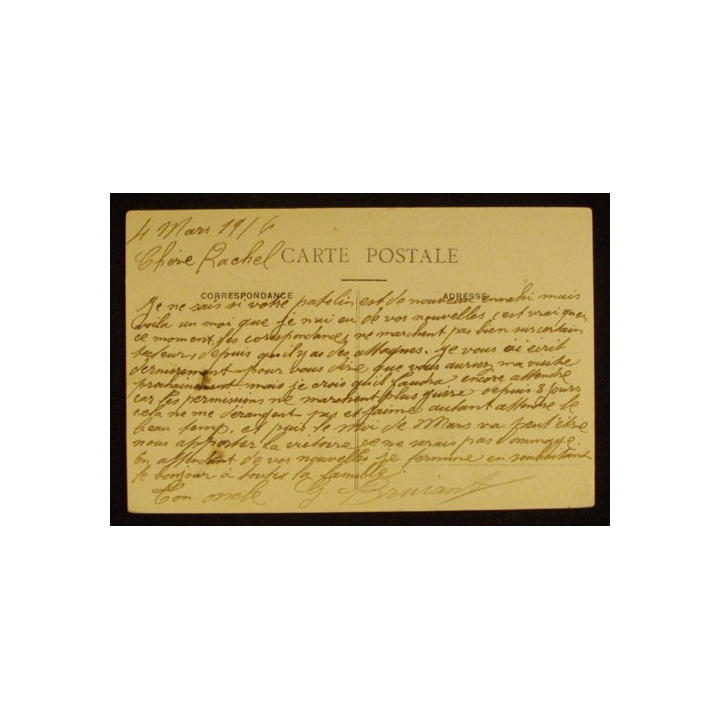 4 Mars 1916
Chère Rachel CARTE POSTALE
CORRESPONDANCE ADRESSE
Je ne sais si votre patelin est de nouveau envahi mais
voila un moi que je n'ai eu de vos nouvelles, c'est vrai que
ce moment, les correspondances ne marchent pas bien sur certain
secteur, depuis qu'il y a des attaques. Je vous ai écrit
dernièrement pour vous dire que vous auriez ma visite
prochainement mais je crois qu'il faudra encore attendre
car les permissions ne marchent plus guère depuis 8 jours
cela ne me derangent pas et j'aime autant attendre le
beau temp, et puis le moi de Mars va peut être
nous apporter la victoire ce ne serais pas dommage.
En attendant de vos nouvelles je termine en souhaitant
le bonjour à toutes la famille.
Ton oncle G. Bruiant